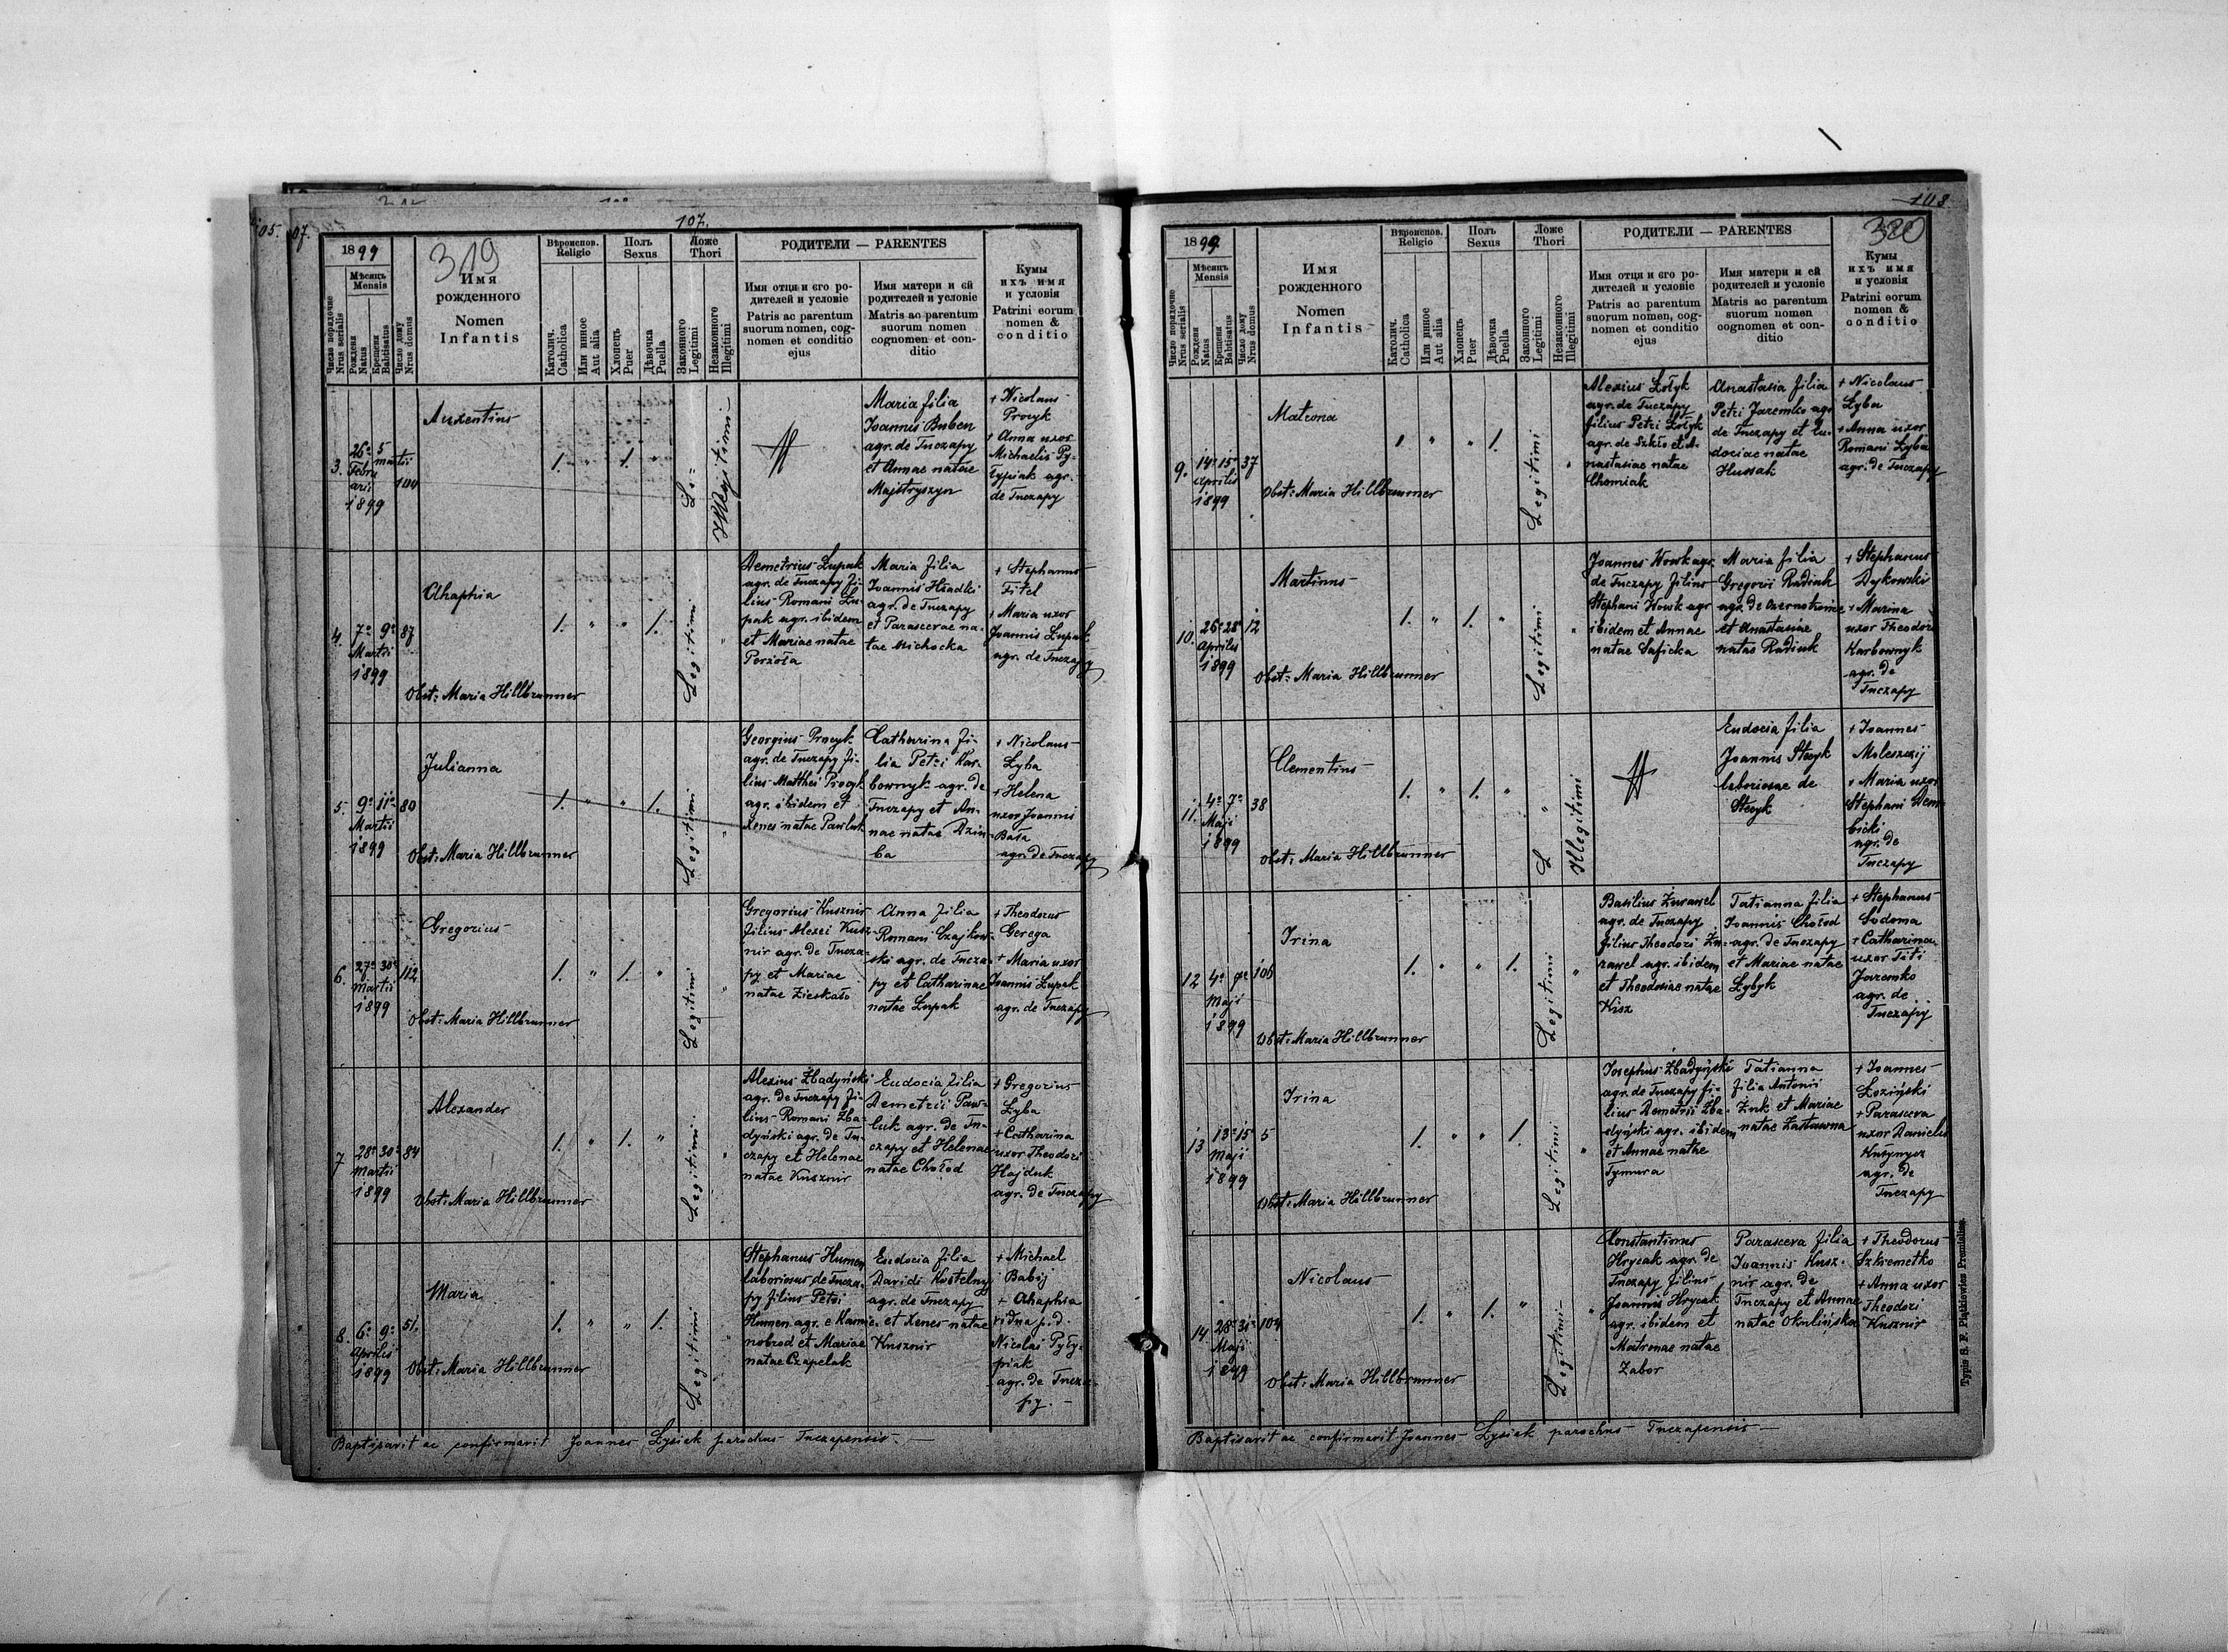 107.
1899
319
Число порядочне
Nrus serialis
Мѣсяцъ
Mensis
Рожденя
Natus
Крещеня
Babtisatus
Число дому
Nrus domus
Имя
рожденного
Nomen
Infantis
Вѣроиспов.
Religio
Католич.
Catholica
Или инное
Aut alia
Полъ
Sexus
Хлопець
Puer
Дѣвочка
Puella
Ложе
Thori
Законного
Legitimi
Незаконного
Illegitimi
РОДИТЕЛИ — PARENTES
Имя отця и єго ро-
дителей и условіе
Patris ac parentum
suorum nomen, cog-
nomen et conditio
ejus
Имя матери и єй
родителей и условіе
Matris ac parentum
suorum nomen
cognomen et con-
ditio
Кумы
ихъ имя
и условія
Patrini eorum
nomen &
conditio
3.
26ª 5
Febru martii
arii
1899
104
Auxentius
1. " 1. "
Illegitimi
Maria filia
Joannis Buben
agr. de Tuczapy
et Annae natae
Majstryszyn
+ Nicolaus
Procyk
+ Anna uxor
Michaelis Py-
łypiak agr.
de Tuczapy
4.
7ª 9ª 87
Martii
1899
Ahaphia
Obst: Maria Hillbrunner
1. " " 1.
Legitimi "
Demetrius Łupak
agr. de Tuczapy fi-
lius Romani Łu-
pak agr. ibidem
et Mariae natae
Porzoła
Maria filia
Joannis Hładki
agr. de Tuczapy
et Parascevae na-
tae Michocka
+ Stephanus
Fitel
+ Maria uxor
Joannis Łupak
agr. de Tuczapy
5.
9ª 11ª 80
Martii
1899
Julianna
Obst: Maria Hillbrunner
1. " " 1.
Legitimi "
Georgius Procyk
agr. de Tuczapy fi-
lius Matthei Procyk
agr. ibidem et
Xenes natae Pawluk
Catharina fi-
lia Petri Kar-
bownyk agr. de
Tuczapy et An-
nae natae Dziu-
ba
+ Nicolaus
Łyba
+ Helena
uxor Joannis
Bała
agr. de Tuczapy
6.
27ª 30ª 112
Martii
1899
Gregorius
Obst: Maria Hillbrunner
1. " 1. "
Legitimi "
Gregorius Kusznir
filius Alexei Kusz-
nir agr. de Tucza-
py et Mariae
natae Zieskało
Anna filia
Romani Czajkow-
ski agr. de Tucza-
py et Catharinae
natae Łupak
+ Theodorus
Gerega
+ Maria uxor
Joannis Łupak
agr. de Tuczapy
7
28ª 30ª 84
Martii
1899
Alexander
Obst: Maria Hillbrunner
1. " 1. "
Legitimi "
Alexius Żbadyński
agr. de Tuczapy fi-
lius Romani Żba-
dyński agr. de Tu-
czapy et Helenae
natae Kusznir
Eudocia filia
Demetrii Paw-
luk agr. de Tu-
czapy et Helenae
natae Chołod
+ Gregorius
Łyba
+ Catharina
uxor Theodori
Hajduk
agr. de Tuczapy
8.
6ª 9ª 51.
Aprilis
1899
Maria
Obst: Maria Hillbrunner
1. " " 1.
Legitimi "
Stephanus Humen
laboriosus de Tucza-
py filius Petri
Humen agr. e Kamie-
nobrod et Mariae
natae Czapelak
Eudocia filia
Davidi Kostelny
agr. de Tuczapy
et Xenes natae
Kusznir
+ Michael
Babij
+ Ahaphia
vidua p. d.
Nicolai Pyły-
piak
agr. de Tucza-
py.
Baptisavit ac confirmavit Joannes Łysiak parochus Tuczapensis.
108
1899
380
Число порядочне
Nrus serialis
Мѣсяцъ
Mensis
Рожденя
Natus
Крещеня
Babtisatus
Число дому
Nrus domus
Имя
рожденного
Nomen
Infantis
Вѣроиспов.
Religio
Католич.
Catholica
Или инное
Aut alia
Полъ
Sexus
Хлопець
Puer
Дѣвочка
Puella
Ложе
Thori
Законного
Legitimi
Незаконного
Illegitimi
РОДИТЕЛИ — PARENTES
Имя отця и єго ро-
дителей и условіе
Patris ac parentum
suorum nomen, cog-
nomen et conditio
ejus
Имя матери и єй
родителей и условіе
Matris ac parentum
suorum nomen
cognomen et con-
ditio
Кумы
ихъ имя
и условія
Patrini eorum
nomen &
conditio
9.
14ª 15ª 37
Aprilis
1899
Matrona
Obst: Maria Hillbrunner
1 " " 1.
Legitimi "
Alexius Żołyk
agr. de Tuczapy
filius Petri Żołyk
agr. de Szkło et A-
nastasiae natae
Chomiak
Anastasia filia
Petri Jaremko agr
de Tuczapy et Eu-
dociae natae
Hussak
+ Nicolaus
Łyba
+ Anna uxor
Romani Łyba
agr. de Tuczapy
10.
26ª 28ª 12
Aprilis
1899
Martinus
Obst: Maria Hillbrunner
1. " 1. "
Legitimi "
Joannes Wowk agr.
de Tuczapy filius
Stephani Wowk agr
ibidem et Annae
natae Saficka
Maria filia
Gregorii Radiuk
agr. de
et Anastasiae
natae Radiuk
+ Stephanus
Dykowski
+ Marina
uxor Theodori
Karbownyk
agr. de
Tuczapy
11.
4ª 7ª 38
Maji
1899
Clementius
Obst: Maria Hillbrunner
1. " 1. "
Illegitimi
Eudocia filia
Joannis Stecyk
laboriosae de
Stecyk
+ Joannes
Moleszczij
+ Maria uxor
Stephani Dem-
bicki
agr. de
Tuczapy
12
4ª 9ª 106
Maji
1899
Irina
Obst: Maria Hillbrunner
1. " " 1.
Legitimi "
Basilius Żurawel
agr. de Tuczapy
filius Theodori Żu-
rawel agr. ibidem
et Theodosiae natae
Kisz
Tatianna filia
Joannis Chołod
agr. de Tuczapy
et Mariae natae
Łybyk
+ Stephanus
Sodoma
+ Catharina
uxor Titi
Jaremko
agr. de
Tuczapy
13
13ª 15ª 5
Maji
1899
Irina
Obst: Maria Hillbrunner
1. " " 1.
Legitimi "
Josephus Żbadyński
agr. de Tuczapy fi-
lius Demetrii Żba-
dyński agr. ibidem
et Annae natae
Tymura
Tatianna
filia Antonii
Żuk et Mariae
natae Zastawna
+ Joannes
Łoziński
+ Parasceva
uxor Danielis
agr. de
Tuczapy
14
28ª 31ª 104
Maji
1899
Nicolaus
Obst: Maria Hillbrunner
1. " 1. "
Legitimi "
Constantinus
Hrycak agr. de
Tuczapy filius
Joannis Hrycak
agr. ibidem et
Matronae natae
Zabor
Parasceva filia
Joannis Kusz-
nir agr. de
Tuczapy et Annae
natae Okulińska
+ Theodorus
Szkremetko
+ Anna uxor
Theodori
Kusznir
Baptisavit ac confirmavit Joannes Łysiak parochus Tuczapensis
Typis S. F. Piątkiewicz Premisliae.